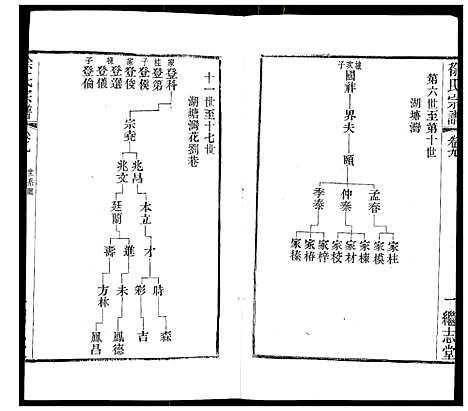 徐氏宗譜 卷九
一 繼志堂
第六世至第十世
湖塘灣
樁次子
國祥
界夫
頤
孟春
仲泰
季泰
家柱
家模
家棟
家材
家棱
家梓
家椿
家榛
十一世至十七世
湖塘灣花劉巷
家
登科
桂
登第
子
登俟
家
登俊
登選
登儀
子
登倫
宗堯
兆昌
兆文
本立
廷蘭
才
進
壽
時
彩
未
方林
森
吉
鳳德
鳳昌
世系圖